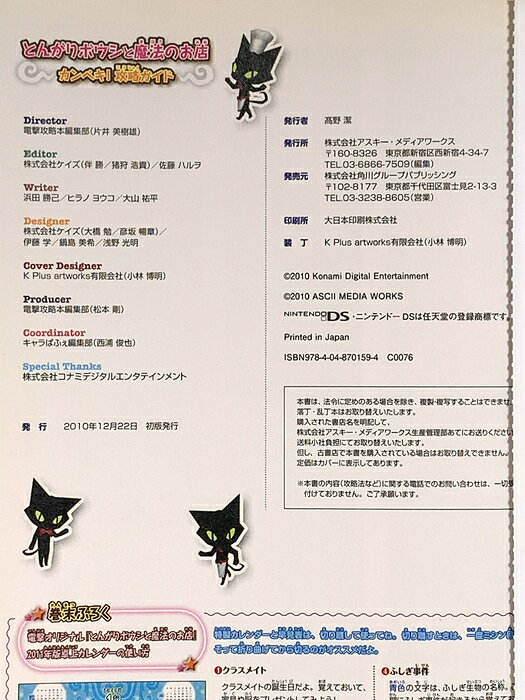 とんがりボウシと魔法のお店
カンペキ! 攻略ガイド
Director
電撃攻略本編集部(片井 美樹雄)
Editor
株式会社ケイズ(伴 勝／猪狩 浩貴)／佐藤 ハルヲ
Writer
浜田 勝己／ヒラノ ヨウコ／大山 祐平
Designer
株式会社ケイズ(大橋 勉／彦坂 暢章)／
伊藤 学／鍋島 美希／浅野 光明
Cover Designer
K Plus artworks有限会社(小林 博明)
Producer
電撃攻略本編集部(松本 剛)
Coordinator
キャラぱふぇ編集部(西浦 俊也)
Special Thanks
株式会社コナミデジタルエンタテインメント
発 行 2010年12月22日 初版発行
発行者 髙野 潔
発行所 株式会社アスキー・メディアワークス
〒160-8326 東京都新宿区西新宿4-34-7
TEL.03-6866-7509(編集)
発売元 株式会社角川グループパブリッシング
〒102-8177 東京都千代田区富士見2-13-3
TEL.03-3238-8605(営業)
印刷所 大日本印刷株式会社
装 丁 K Plus artworks有限会社(小林 博明)
©2010 Konami Digital Entertainment
©2010 ASCII MEDIA WORKS
NINTENDO DS・ニンテンドーDSは任天堂の登録商標です。
Printed in Japan
ISBN978-4-04-870159-4 C0076
本書は、法令に定めのある場合を除き、複製・複写することはできませ
落丁・乱丁本はお取り替えいたします。
購入された書店名を明記して、
株式会社アスキー・メディアワークス生産管理部あてにお送りください
送料小社負担にてお取り替えいたします。
但し、古書店で本書を購入されている場合はお取り替えできません。
定価はカバーに表示してあります。
※本書の内容(攻略法など)に関する電話でのお問い合わせは、一切受
付けておりません。ご了承願います。
巻末ふろく
電撃オリジナル『とんがりボウシと魔法のお店』
2011年版卓上カレンダーの使い方
特製カレンダーと早見表は、切り離して使ってね。切り離すときは、二重ミシン
そって折り曲げてから切るのがオススメだよ。
❶クラスメイト
クラスメイトの誕生日だよ。覚えておいて、
❹ふしぎ事件
青色の文字は、ふしぎ生物の名称。